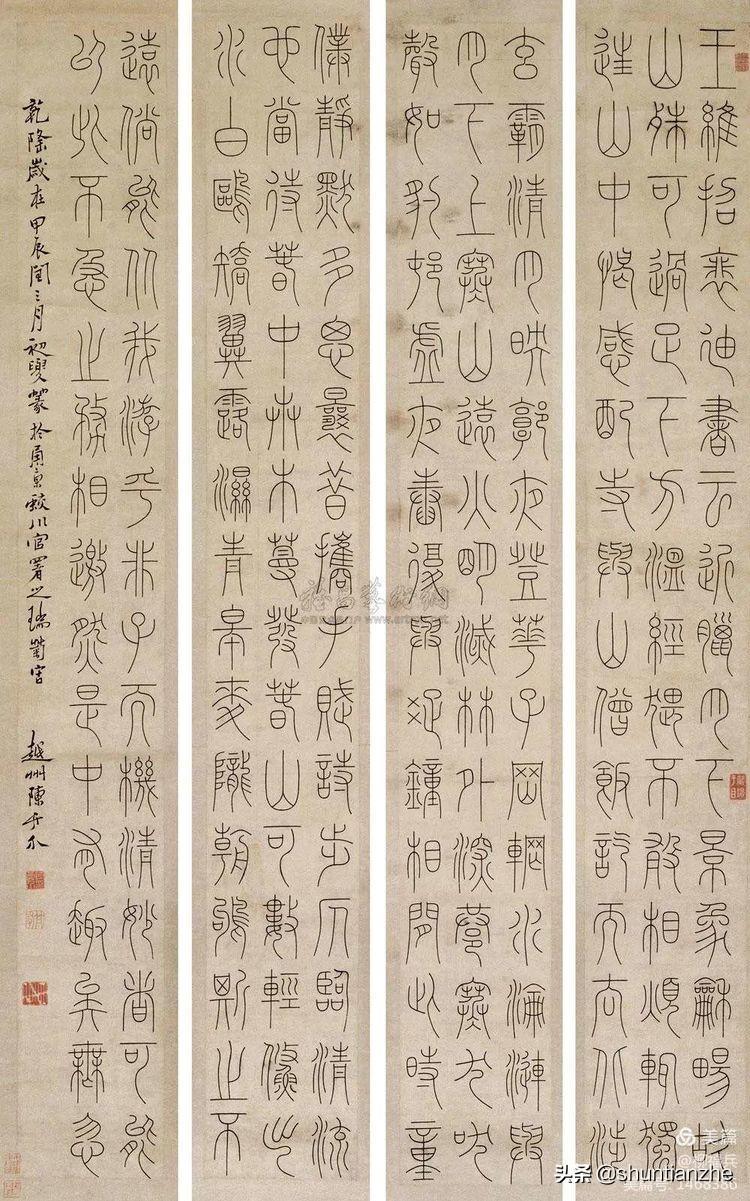 王維招裴迪書云近臘月下景象龢暢故
山殊可過足下方溫經猥不敢相煩輒獨
往山中憩感配寺與山僧飯訖而去北涉
玄霸清月映郭夜登華子岡輞水淪漣與
月下上寒山遠火明滅林外深巷寒犬吠
聲如豹邨虛夜舂復與疏鐘相間此時童
僕靜默多思曩昔攜手賦詩步仄臨清流
也當待春中卉木蔓發春山可數輕鯈出
水白鷗矯翼露濕青皋麥隴朝雊斯之不
遠倘能從我游乎非子天機清妙者可能
以此不急之務相邀然是中有趣矣無忽
乾隆歲在甲辰閏三月初篆於甬東蛟川官署之瑞
越州陳
美篇
头条 @shuntianzhe